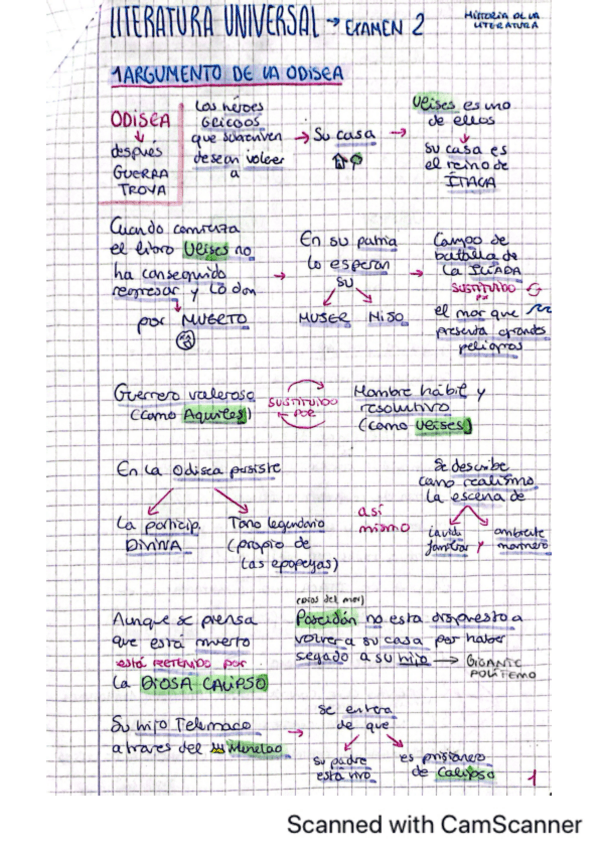 LITERATURA UNIVERSAL → EXAMEN 2
HISTORIA DE LA
LITERATURA
1 ARGUMENTO DE LA ODISEA
ODISEA
después
GUERRA
TROYA
Los héroes
GRIEGOS
que sobreviven
desean volver
a
→ Su casa →
Ulises es uno
de ellos
Su casa es
el reino de
ÍTACA
Cuando comienza
el libro Ulises no
ha conseguido
regresar y lo dan
por MUERTO
En su patria
lo esperan
SU
MUJER HIJO
Campo de
batalla de
la ILIADA
SUSTITUIDO
por
el mar que
presenta grandes
peligros
Guerrero valeroso
(como Aquiles)
SUSTITUIDO
POR
Hombre hábil y
resolutivo
(como Ulises)
En la Odisea persiste
La particip.
DIVINA
Tono legendario
(propio de
las epopeyas)
así
mismo
Se describe
como realismo
la escena de
la vida
familiar y
ambiente
marinero
Aunque se piensa
que está muerto
está RETENIDO por
la DIOSA CALIPSO
(dios del mar)
Poseidón no esta dispuesto a
volver a su casa por haber
segado a su hijo → GIGANTE
POLIFEMO
Su hijo Telemaco
a traves del Menelao
→
se entera
de que
Su padre
está vivo
es prisionero
de Calipso
1
Scanned with CamScanner